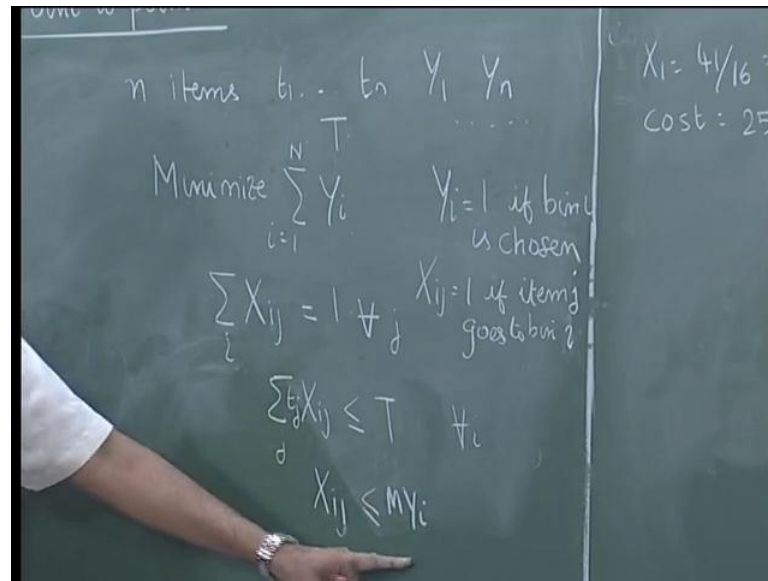 n items t₁ ... tₙ Y₁ Yₙ
T .....
Minimize ∑ᵢ₌₁ᴺ Yᵢ Yᵢ = 1 if bin i
is chosen
∑ᵢ Xᵢⱼ = 1 ∀ⱼ Xᵢⱼ = 1 if item j
goes to bin i
∑ⱼ tⱼXᵢⱼ ≤ T ∀i
Xᵢⱼ ≤ MYᵢ
X₁ = 41/16 =
cost = 25